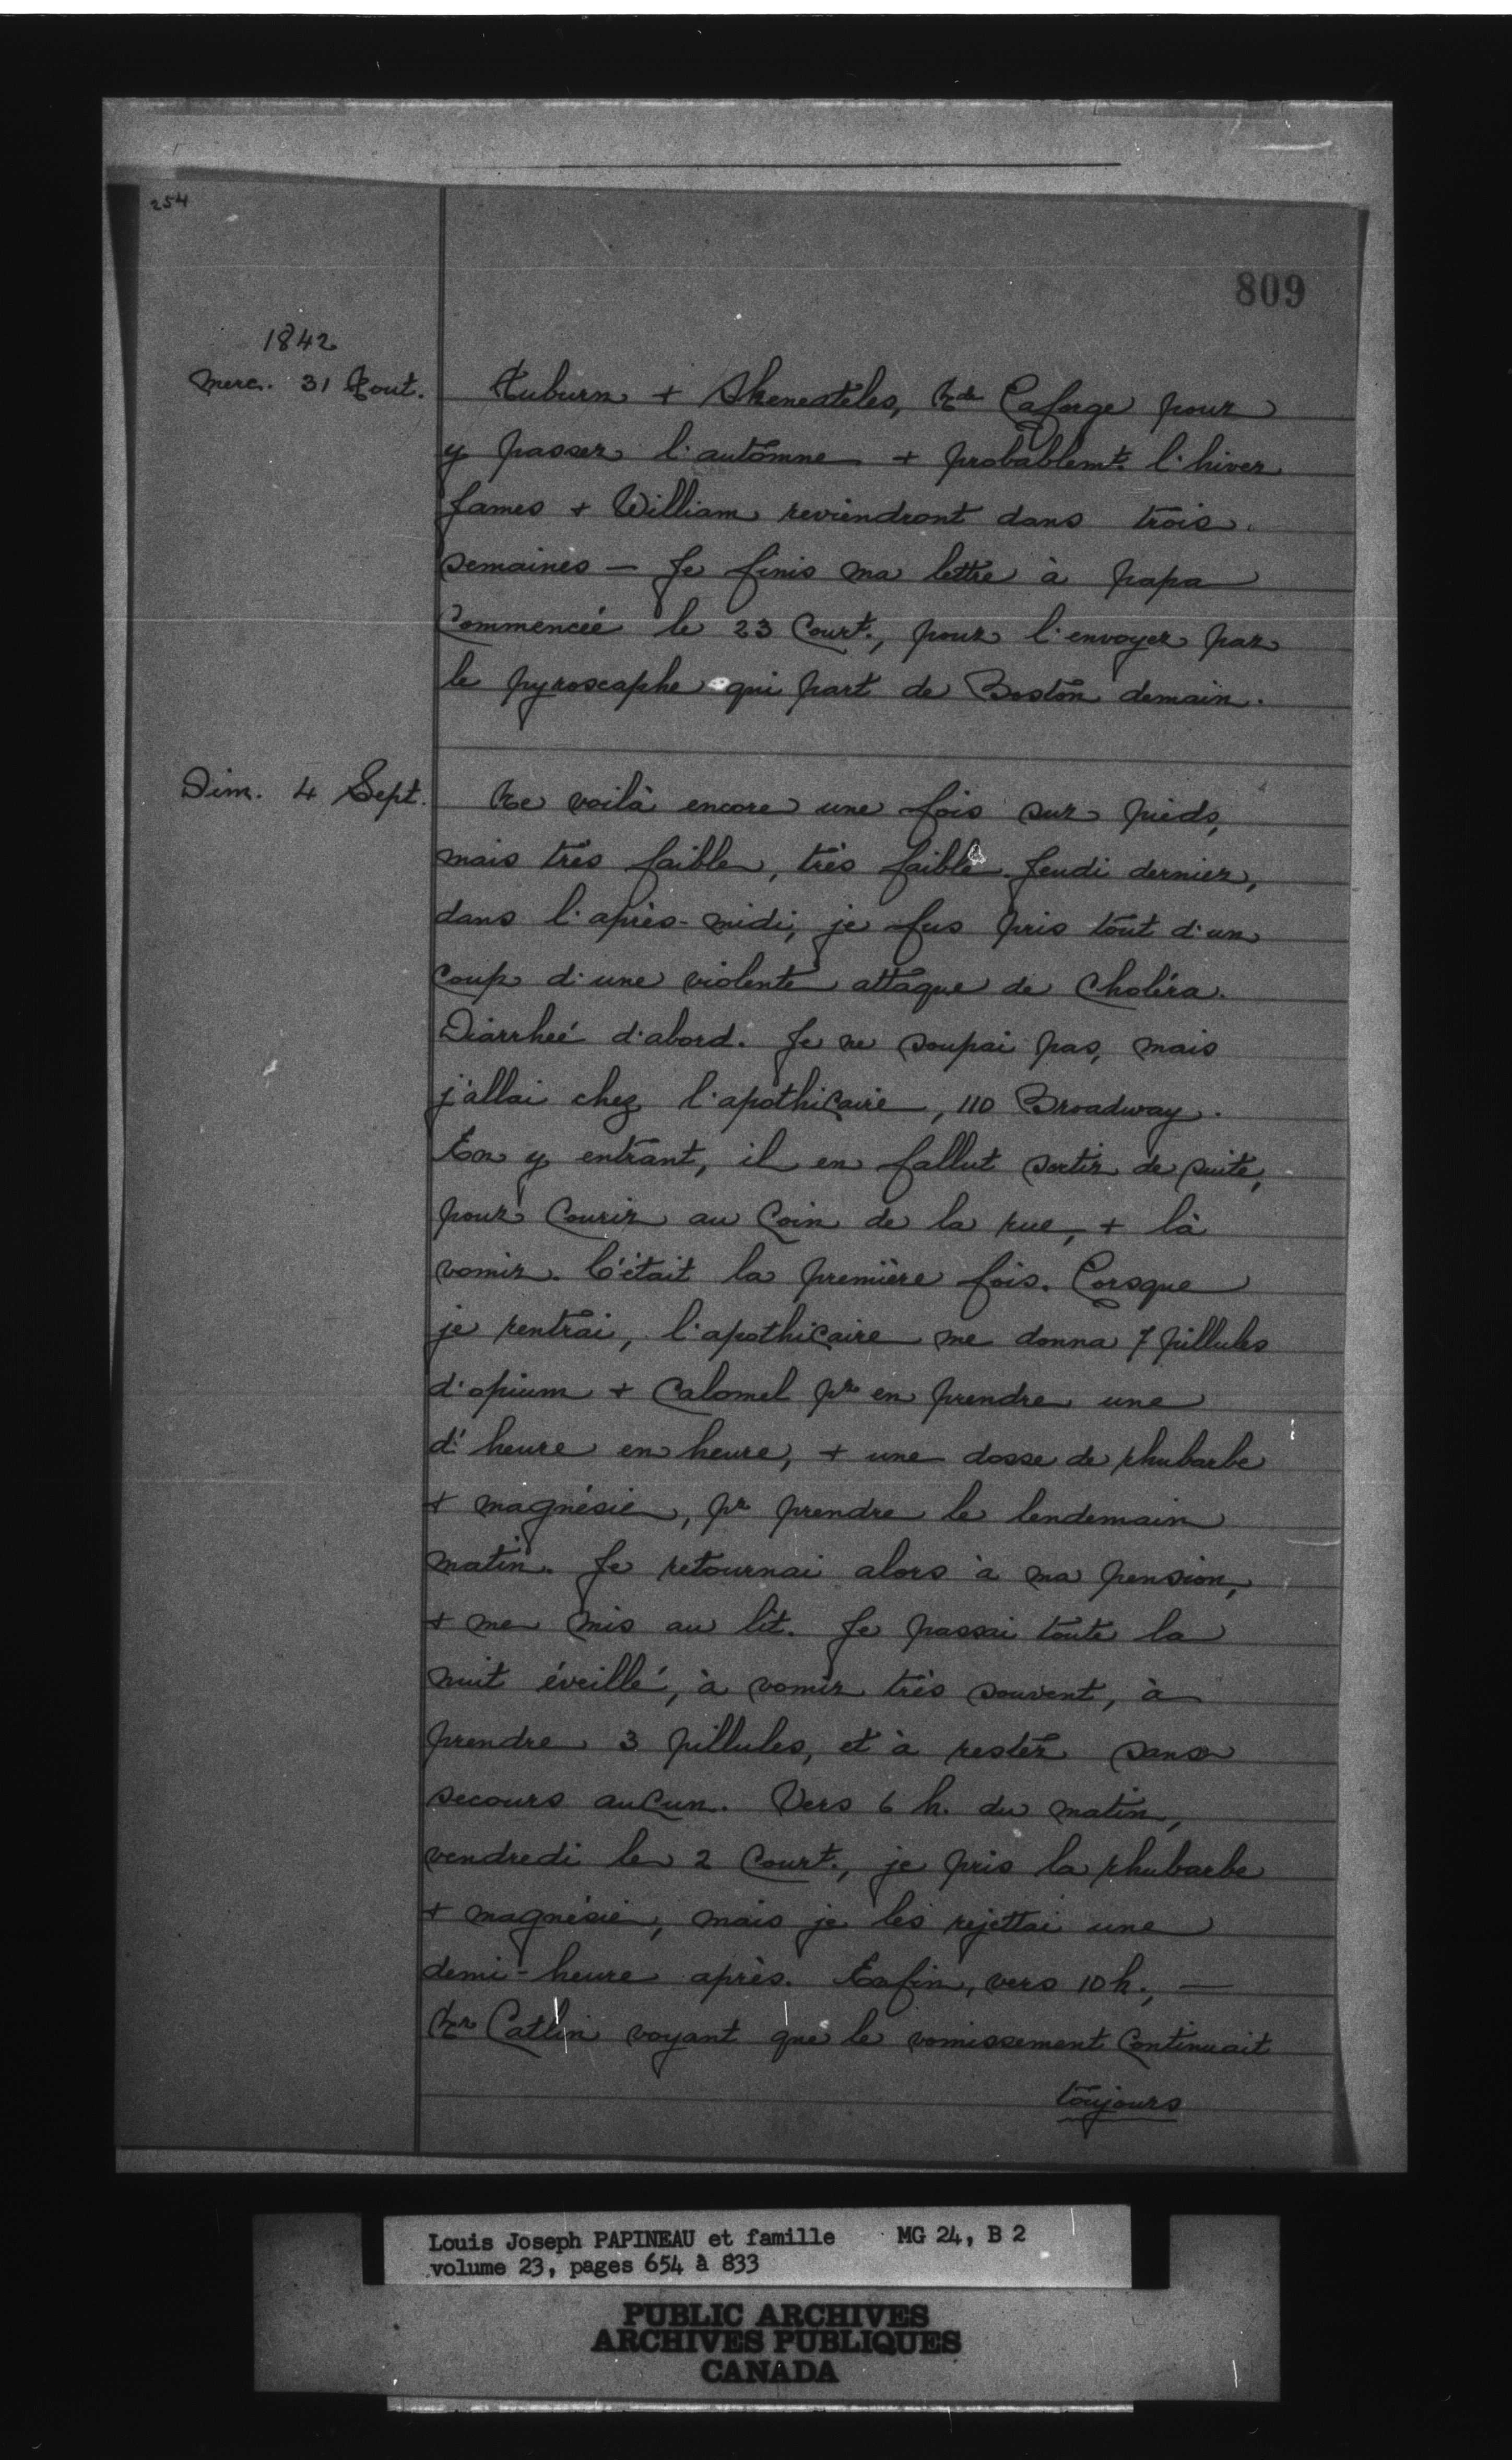 254
809
1842
Merc. 31 Aout.
Auburn + Skeneateles, Mde Laforge pour
y passer l'automne + probablemt. l'hiver
James + William reviendront dans trois
semaines — Je finis ma lettre à papa
Commencée le 23 Court., pour l'envoyer par
le pyroscaphe qui part de Boston demain.
Dim. 4 Sept.
Me voilà encore une fois sur pieds,
mais très faible, très faible. Jeudi dernier,
dans l'après-midi, je fus pris tout d'un
coup d'une violente attaque de Choléra.
Diarrheé d'abord. Je ne soupai pas, mais
j'allai chez l'apothicaire, 110 Broadway.
En y entrant, il en fallut sortir de suite,
pour Courir au Coin de la rue, + là
vomir. C'était la première fois. Lorsque
je rentrai, l'apothicaire me donna 7 pillules
d'opium + Calomel pr en prendre une
d'heure en heure, + une dosse de rhubarbe
+ magnésie, pr prendre le lendemain
matin. Je retournai alors à ma pension,
+ me mis au lit. Je passai toute la
nuit éveillé, à vomir très souvent, à
prendre 3 pillules, et à rester sans
secours aucun. Vers 6 h. du matin,
vendredi le 2 Court., je pris la rhubarbe
+ magnésie, mais je les rejettai une
demi-heure après. Enfin, vers 10 h., —
Mr Catlin voyant que le vomissement Continuait
toujours
Louis Joseph PAPINEAU et famille MG 24, B 2
volume 23, pages 654 à 833
PUBLIC ARCHIVES
ARCHIVES PUBLIQUES
CANADA